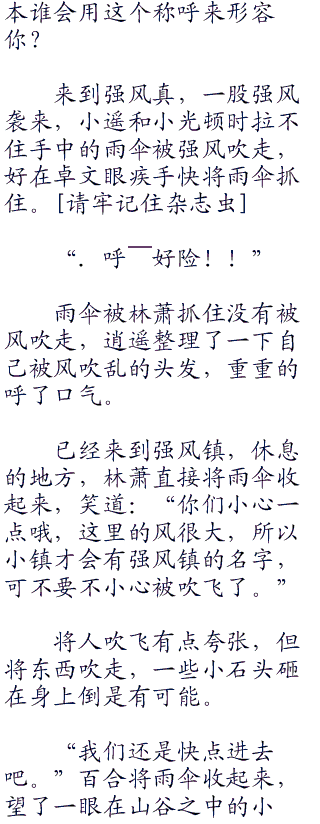 本谁会用这个称呼来形容
你？
来到强风真，一股强风
袭来，小遥和小光顿时拉不
住手中的雨伞被强风吹走，
好在卓文眼疾手快将雨伞抓
住。[请牢记住杂志虫]
“．呼￣好险！！”
雨伞被林萧抓住没有被
风吹走，逍遥整理了一下自
己被风吹乱的头发，重重的
呼了口气。
已经来到强风镇，休息
的地方，林萧直接将雨伞收
起来，笑道：“你们小心一
点哦，这里的风很大，所以
小镇才会有强风镇的名字，
可不要不小心被吹飞了。”
将人吹飞有点夸张，但
将东西吹走，一些小石头砸
在身上倒是有可能。
“我们还是快点进去
吧。”百合将雨伞收起来，
望了一眼在山谷之中的小